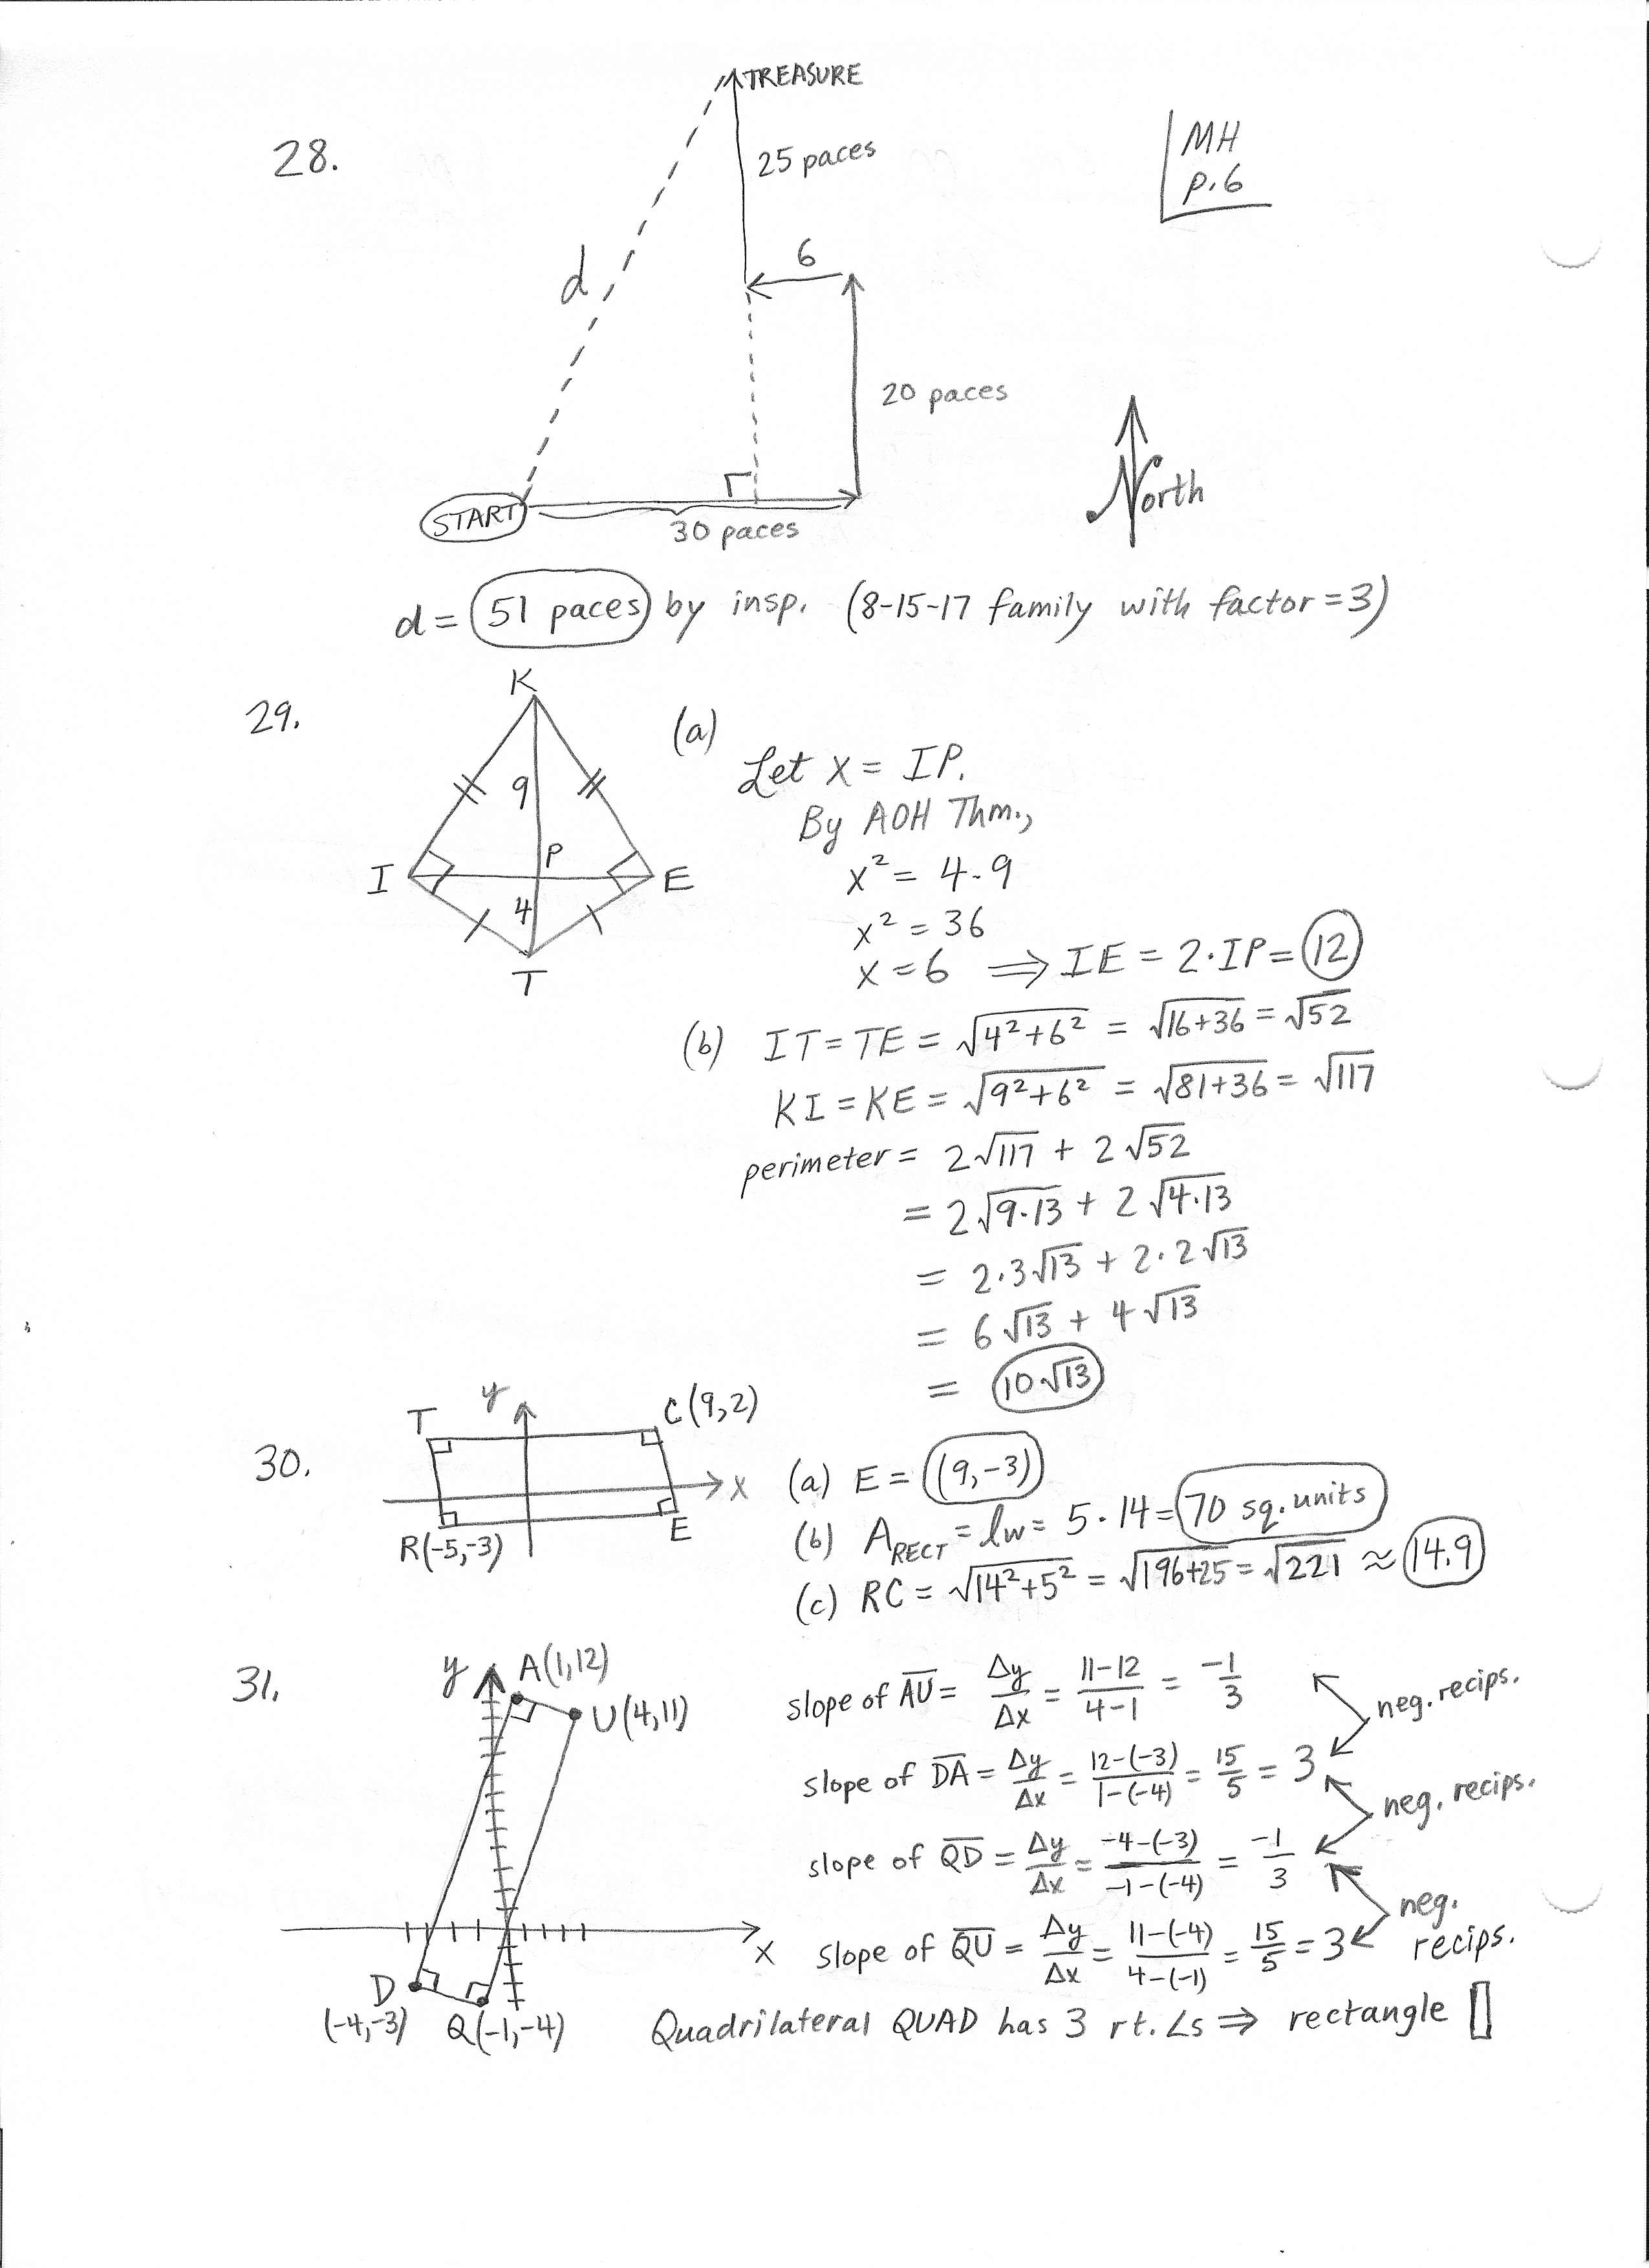 28.
TREASURE
25 paces
MH
p.6
d
6
20 paces
North
START
30 paces
d = 51 paces by insp. (8-15-17 family with factor = 3)
29.
K
9
P
I
E
4
T
(a)
Let x = IP.
By AOH Thm.,
x² = 4·9
x² = 36
x = 6 ⇒ IE = 2·IP = 12
(b) IT = TE = √(4²+6²) = √(16+36) = √52
KI = KE = √(9²+6²) = √(81+36) = √117
perimeter = 2√117 + 2√52
= 2√(9·13) + 2√(4·13)
= 2·3√13 + 2·2√13
= 6√13 + 4√13
= 10√13
30.
y
T
C(9,2)
x
R(-5,-3)
E
(a) E = (9,-3)
(b) A_RECT = lw = 5·14 = 70 sq. units
(c) RC = √(14²+5²) = √(196+25) = √221 ≈ 14.9
31.
y
A(1,12)
U(4,11)
x
D
(-4,-3)
Q(-1,-4)
slope of AU = Δy/Δx = (11-12)/(4-1) = -1/3
neg. recips.
slope of DA = Δy/Δx = (12-(-3))/(1-(-4)) = 15/5 = 3
neg. recips.
slope of QD = Δy/Δx = (-4-(-3))/(-1-(-4)) = -1/3
neg.
recips.
slope of QU = Δy/Δx = (11-(-4))/(4-(-1)) = 15/5 = 3
Quadrilateral QUAD has 3 rt. ∠s ⇒ rectangle ▯